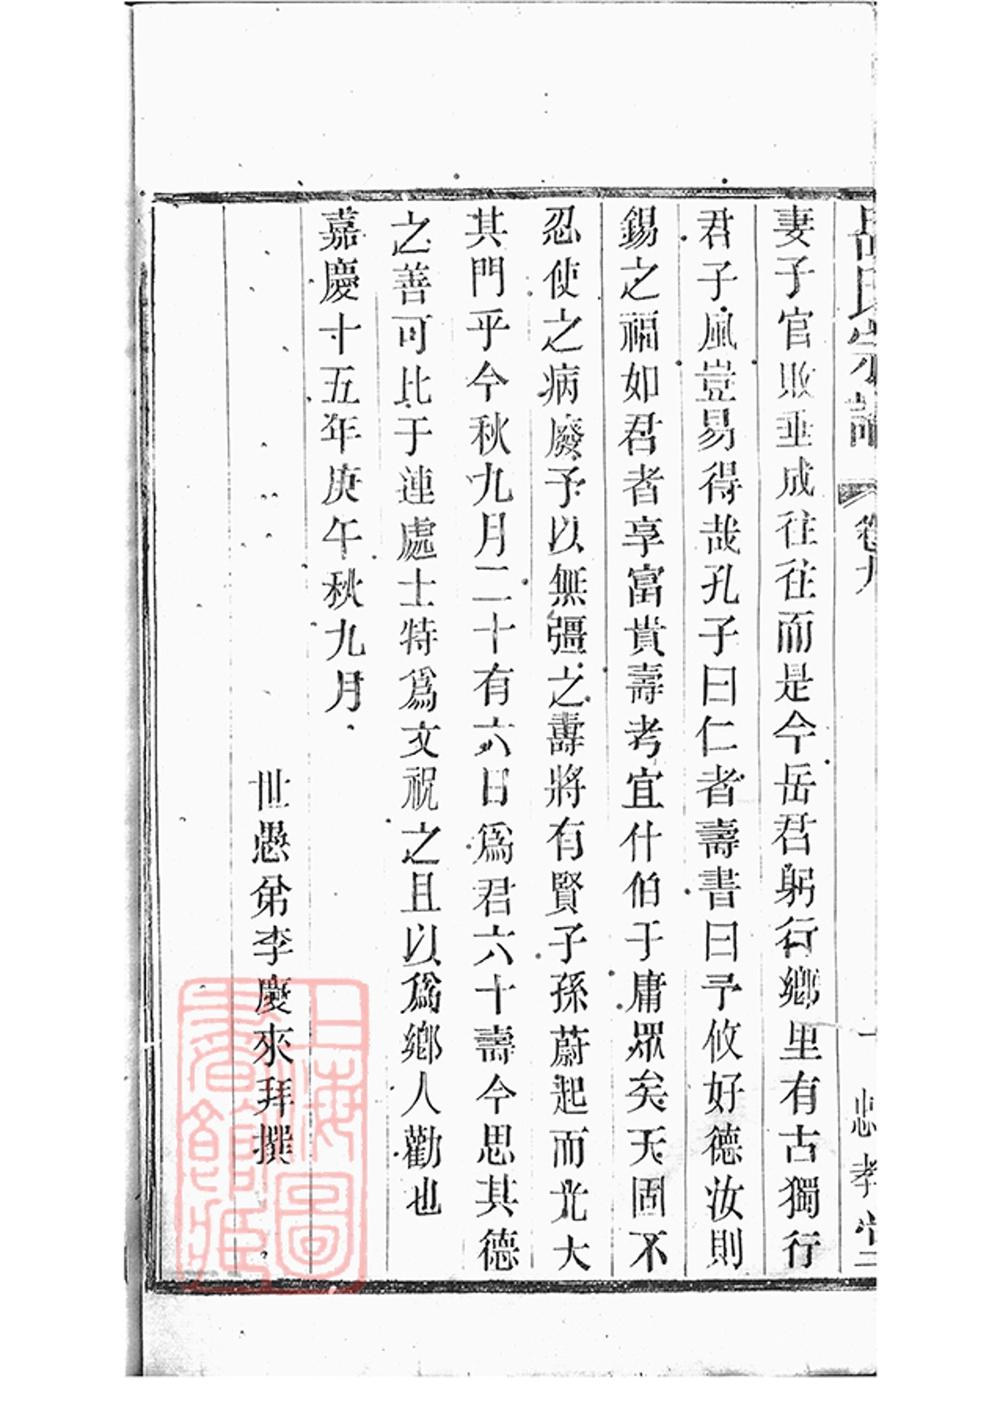 岳氏宗譜 卷九 一 忠孝堂
妻子官敗垂成往往而是今岳君躬行鄉里有古獨行
君子風豈易得哉孔子曰仁者壽書曰予攸好德汝則
錫之福如君者享富貴壽考宜什伯于庸眾矣天固不
忍使之病廢予以無疆之壽將有賢子孫蔚起而光大
其門乎今秋九月二十有六日為君六十壽今思其德
之善可比于連處士特為文祝之且以為鄉人勸也
嘉慶十五年庚午秋九月
世愚弟李慶來拜撰
上海圖書館藏